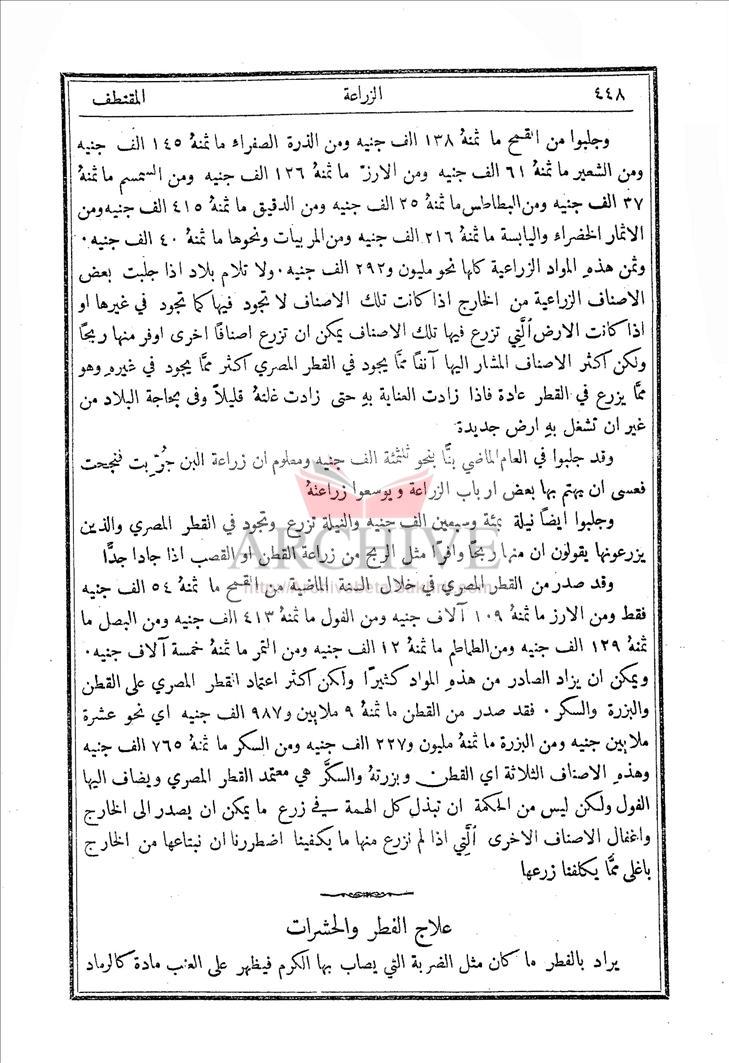 ٤٤٨ الزراعة المقتطف
وجلبوا من القمح ما ثمنهُ ١٣٨ الف جنيه ومن الذرة الصفراء ما ثمنهُ ١٤٥ الف جنيه
ومن الشعير ما ثمنهُ ٦١ الف جنيه ومن الارز ما ثمنهُ ١٢٦ الف جنيه ومن السمسم ما ثمنهُ
٣٧ الف جنيه ومن البطاطس ما ثمنهُ ٢٥ الف جنيه ومن الدقيق ما ثمنهُ ٤١٥ الف جنيه ومن
الاثمار الخضراء واليابسة ما ثمنهُ ٢١٦ الف جنيه ومن المربيات ونحوها ما ثمنهُ ٤٠ الف جنيه.
وثمن هذهِ المواد الزراعية كلها نحو مليون و٢٩٢ الف جنيه. ولا تلام بلاد اذا جلبت بعض
الاصناف الزراعية من الخارج اذا كانت تلك الاصناف لا تجود فيها كما تجود في غيرها او
اذا كانت الارض ٱلَّتِي تزرع فيها تلك الاصناف يمكن ان تزرع اصنافًا اخرى اوفر منها ربحًا
ولكن اكثر الاصناف المشار اليها آنفًا ممَّا يجود في القطر المصري اكثر ممَّا يجود في غيرهِ وهو
ممَّا يزرع في القطر عادة فاذا زادت العناية بهِ حتى زادت غلتهُ قليلاً وفى بحاجة البلاد من
غير ان تشغل بهِ ارض جديدة
وقد جلبوا في العام الماضي بنًّا بنحو ثلثمئة الف جنيه ومعلوم ان زراعة البن جُرّبت فنجحت
فعسى ان يهتم بها بعض ارباب الزراعة ويوسعوا زراعتهُ
وجلبوا ايضًا نيلة بمئة وسبعين الف جنيه والنيلة تزرع وتجود في القطر المصري والذين
يزرعونها يقولون ان منها ربحًا وافرًا مثل الربح من زراعة القطن او القصب اذا جادا جدًّا
وقد صدر من القطر المصري في خلال السنة الماضية من القمح ما ثمنهُ ٥٤ الف جنيه
فقط ومن الارز ما ثمنهُ ١٠٩ آلاف جنيه ومن الفول ما ثمنهُ ٤١٣ الف جنيه ومن البصل ما
ثمنهُ ١٢٩ الف جنيه ومن الطماطم ما ثمنهُ ١٢ الف جنيه ومن التمر ما ثمنهُ خمسة آلاف جنيه.
ويمكن ان يزاد الصادر من هذهِ المواد كثيرًا ولكن اكثر اعتماد القطر المصري على القطن
والبزرة والسكر. فقد صدر من القطن ما ثمنهُ ٩ ملايين و٩٨٧ الف جنيه اي نحو عشرة
ملايين جنيه ومن البزرة ما ثمنهُ مليون و٢٢٧ الف جنيه ومن السكر ما ثمنهُ ٧٦٥ الف جنيه
وهذهِ الاصناف الثلاثة اي القطن وبزرتهُ والسكَّر هي معتمد القطر المصري ويضاف اليها
الفول ولكن ليس من الحكمة ان تبذل كل الهمة في زرع ما يمكن ان يصدر الى الخارج
واغفال الاصناف الاخرى ٱلَّتِي اذا لم نزرع منها ما يكفينا اضطررنا ان نبتاعها من الخارج
باغلى ممَّا يكلفنا زرعها
علاج الفطر والحشرات
يراد بالفطر ما كان مثل الضربة التي يصاب بها الكرم فيظهر على العنب مادة كالرماد
ARCHIVE